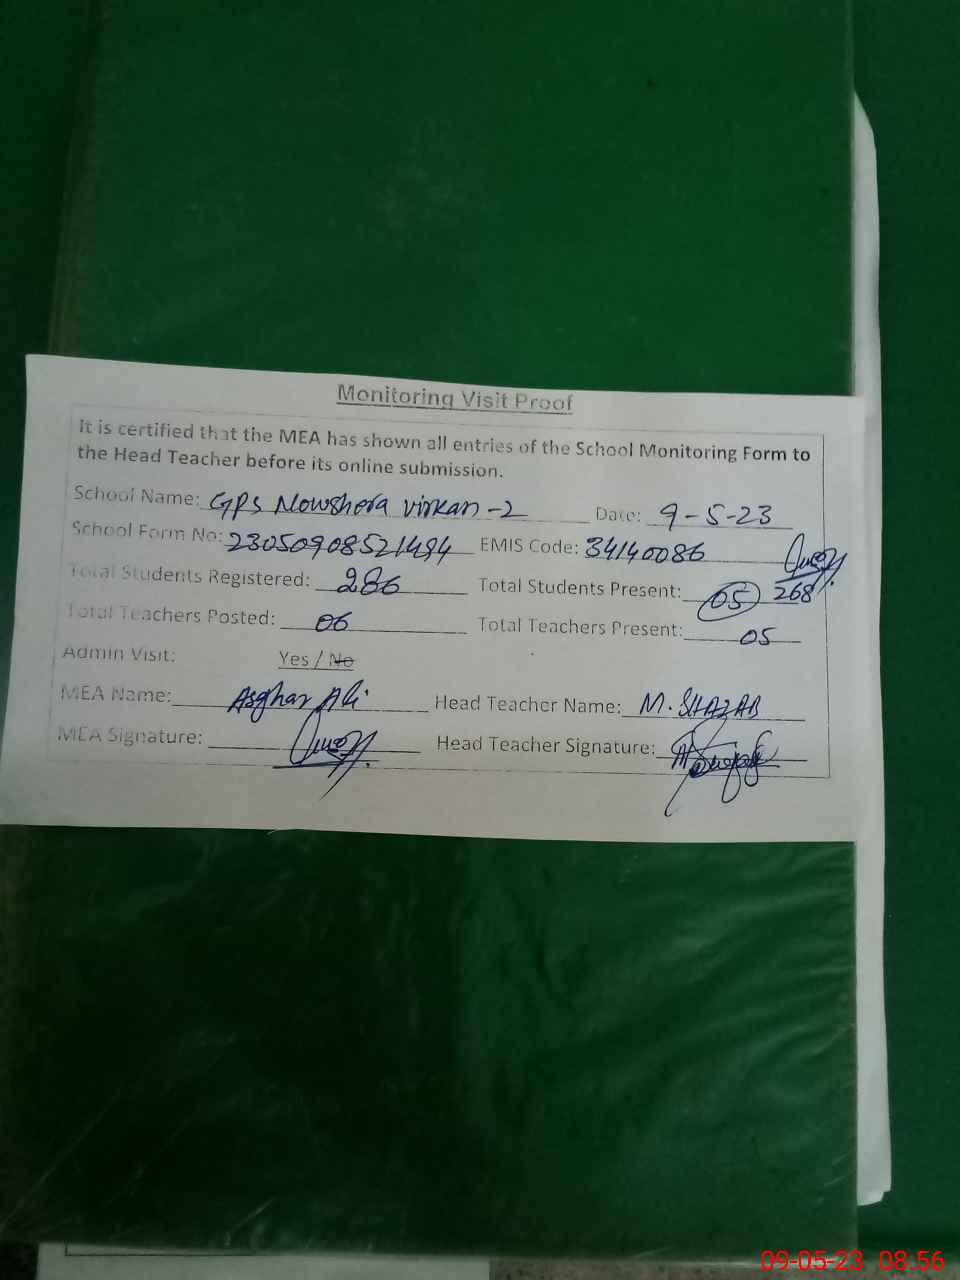 Monitoring Visit Proof
It is certified that the MEA has shown all entries of the School Monitoring Form to
the Head Teacher before its online submission.
School Name: GPS Nowshera virkan -2 Date: 9-5-23
School Form No: 23050908521494 EMIS Code: 34140086
Total Students Registered: 286 Total Students Present: 05 268
Total Teachers Posted: 06 Total Teachers Present: 05
Admin Visit: Yes / No
MEA Name: Asghar Ali Head Teacher Name: M. SHAZAB
MEA Signature: Head Teacher Signature:
09-05-23 08:56